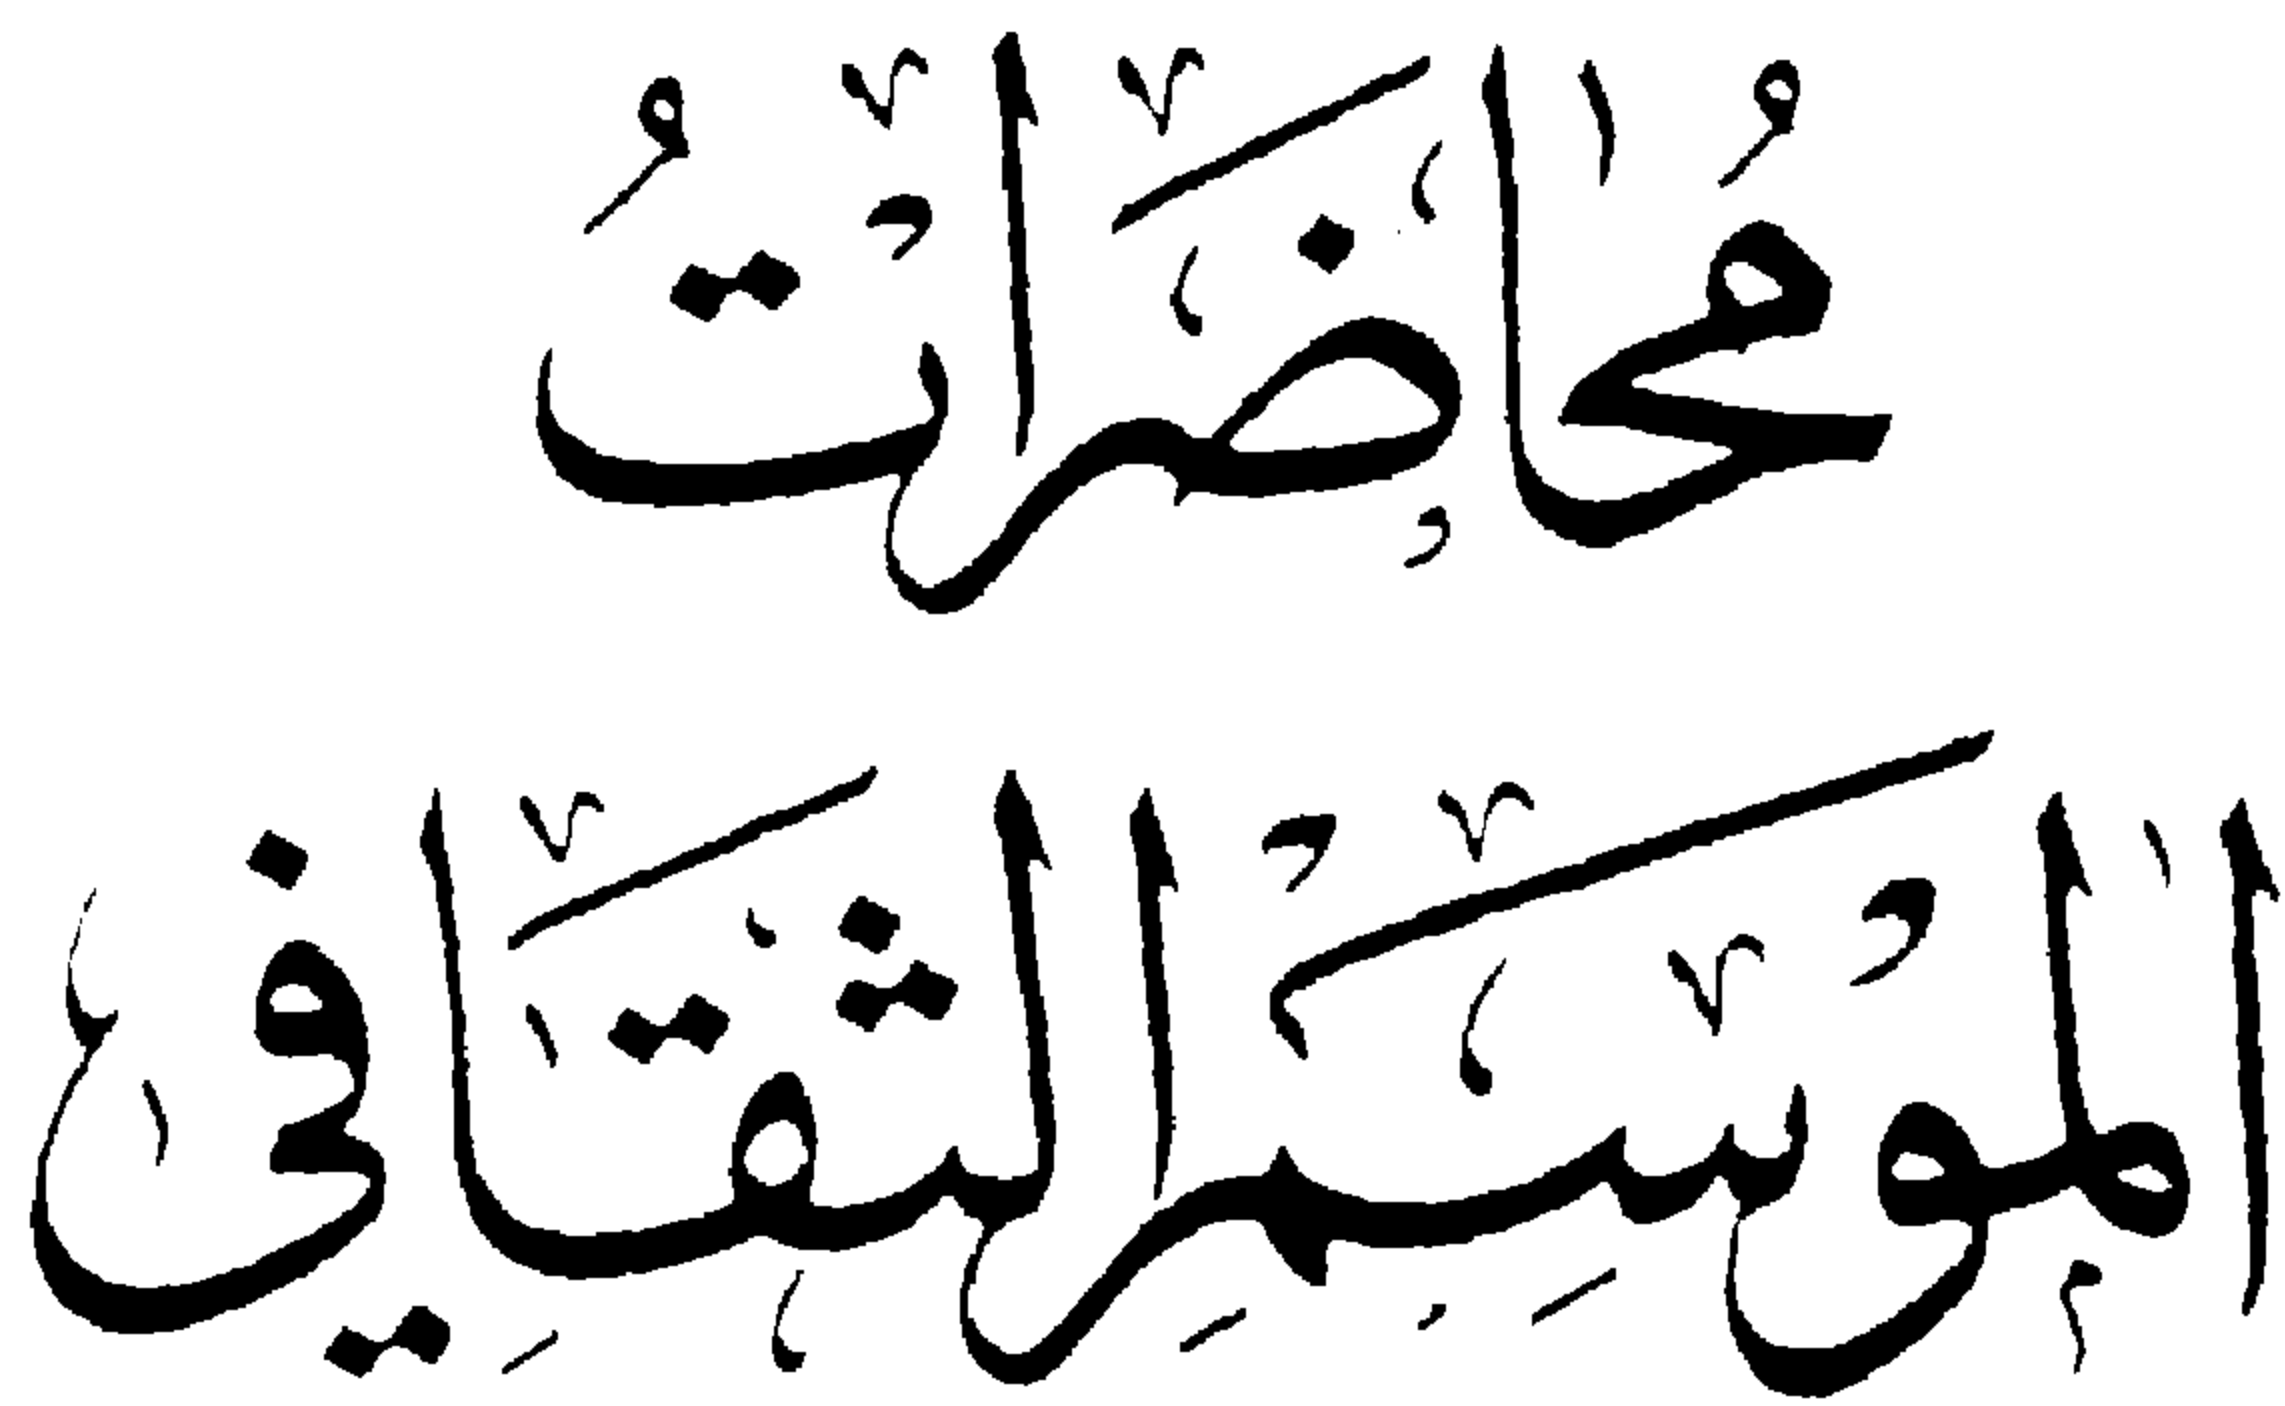 محاضرات
الموسم الثقافي